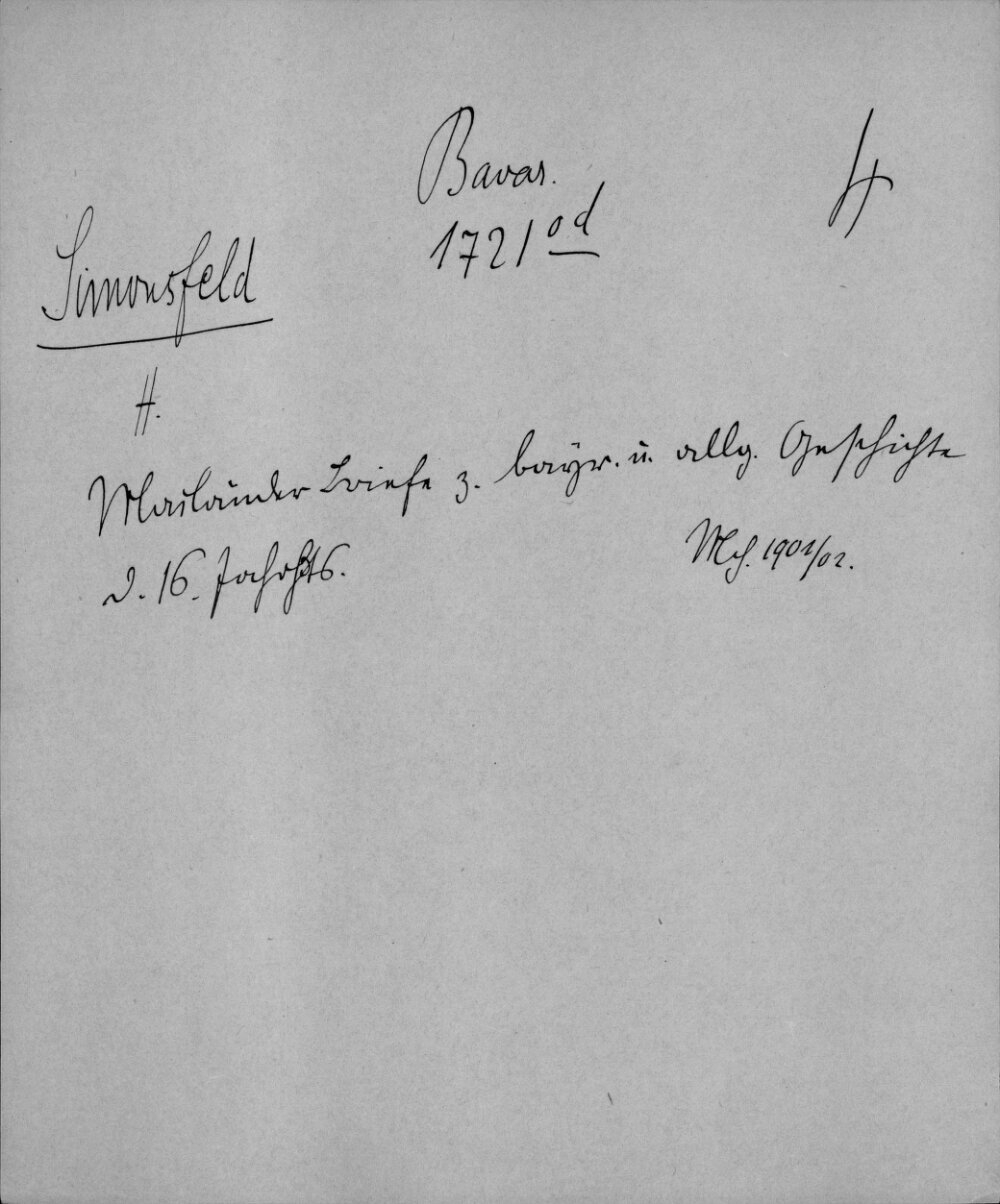 Bavar. 4
1721 od
Simonsfeld
H.
Mailänder Briefe z. bayr. u. allg. Geschichte
d. 16. Jahrhdts.
Mch. 1901/02.